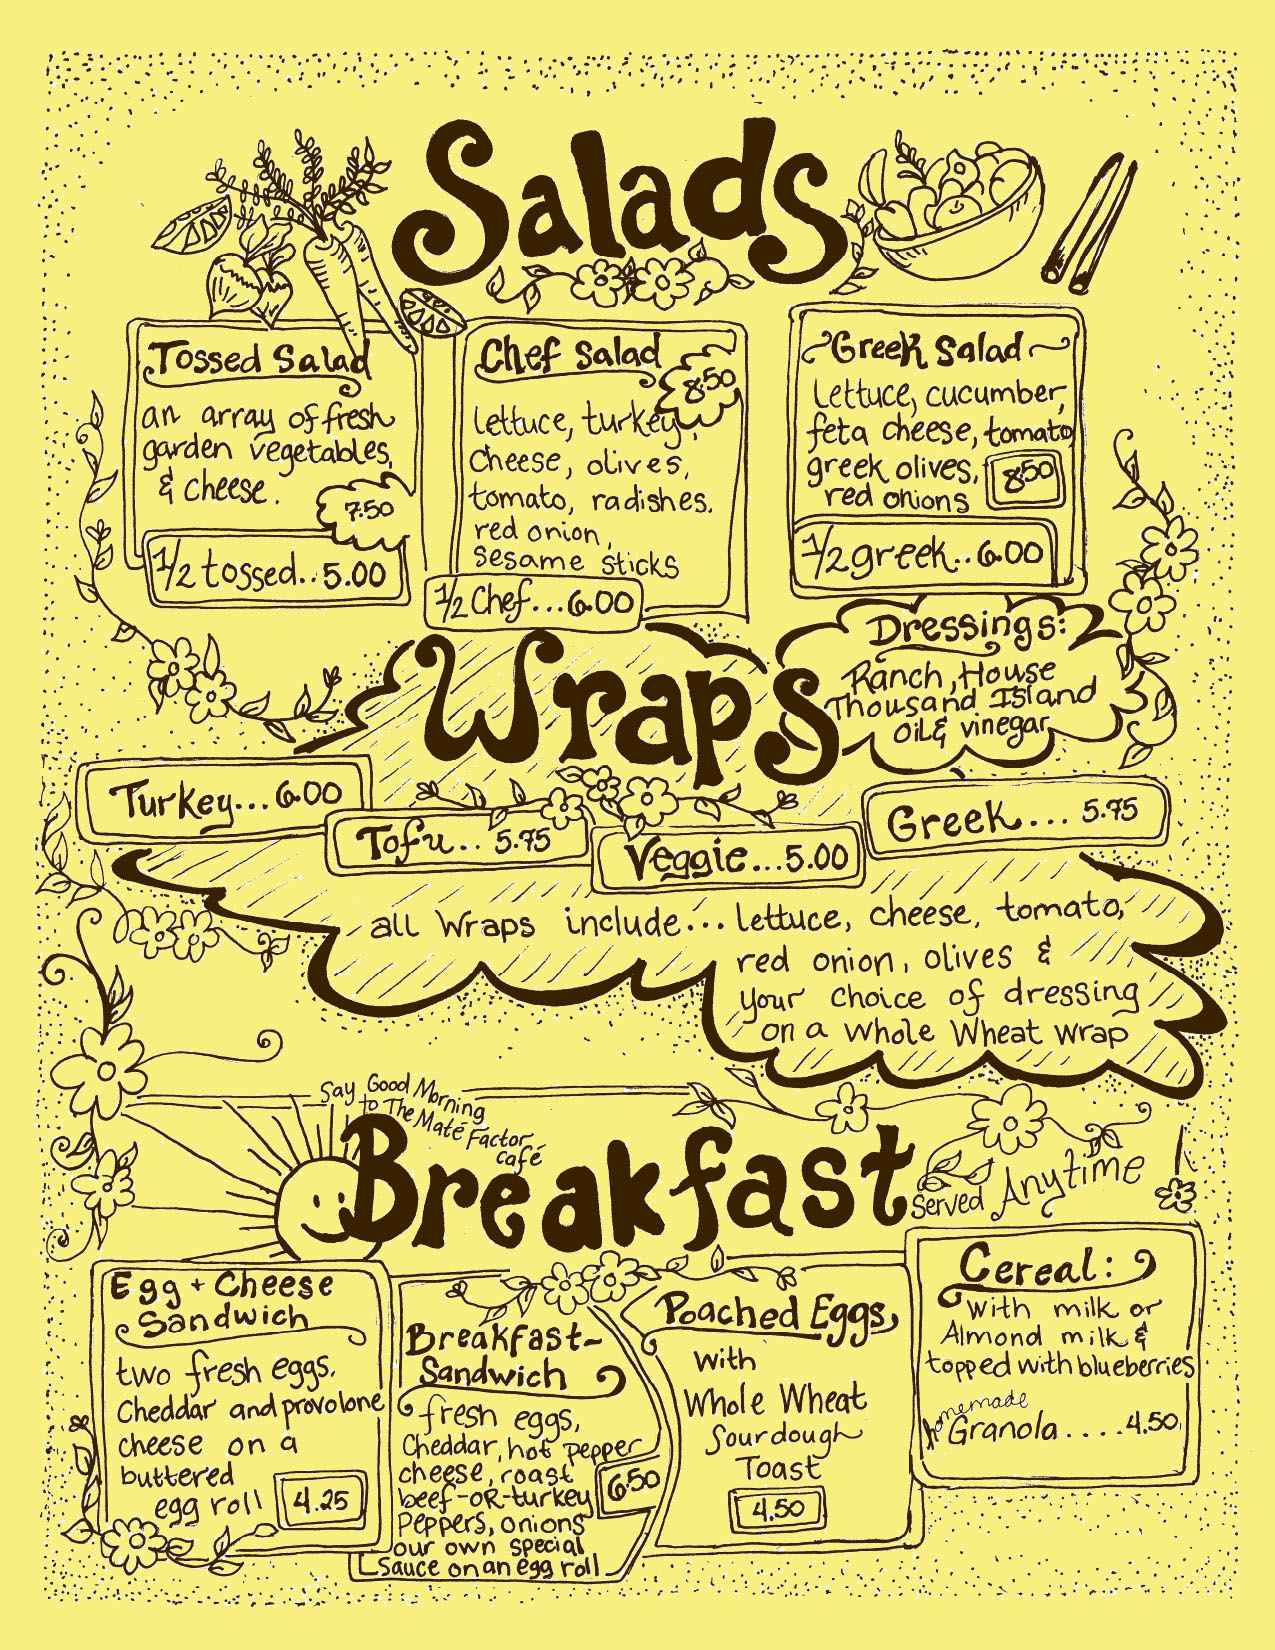 Salads
Tossed Salad
an array of fresh
garden vegetables,
& cheese.
7.50
1/2 tossed.. 5.00
Chef Salad
8.50
lettuce, turkey,
cheese, olives,
tomato, radishes.
red onion,
sesame sticks
1/2 Chef... 6.00
Greek Salad
Lettuce, cucumber,
feta cheese, tomato
greek olives,
red onions
8.50
1/2 greek.. 6.00
Dressings:
Ranch, House
Thousand Island
Oil & vinegar
Wraps
Turkey... 6.00
Tofu.. 5.75
Veggie... 5.00
Greek... 5.75
all wraps include... lettuce, cheese, tomato,
red onion, olives &
your choice of dressing
on a whole wheat wrap
Say Good Morning
to The Maté Factor
café
Breakfast
Served Anytime!
Egg + Cheese
Sandwich
two fresh eggs.
Cheddar and provolone
cheese on a
buttered
egg roll
4.25
Breakfast-
Sandwich
fresh eggs,
Cheddar, hot pepper
cheese, roast
beef-OR-turkey
Peppers, onions
our own special
Sauce on an egg roll
6.50
Poached Eggs
with
Whole Wheat
Sourdough
Toast
4.50
Cereal:
With milk or
Almond milk &
topped with blueberries
homemade
Granola.... 4.50